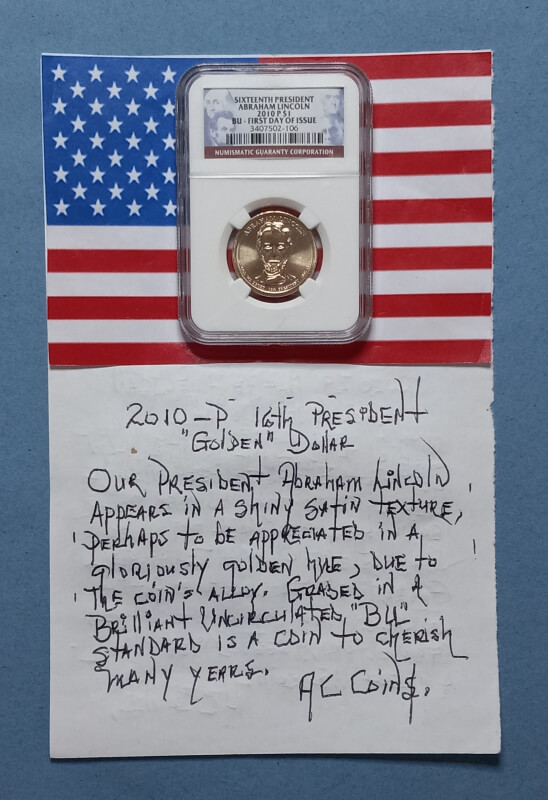 SIXTEENTH PRESIDENT
ABRAHAM LINCOLN
2010 P $1
BU - FIRST DAY OF ISSUE
3407502-106
NUMISMATIC GUARANTY CORPORATION
ABRAHAM LINCOLN
2010-P 16th PRESIDENT
"GOLDEN" DOLLAR
OUR PRESIDENT ABRAHAM LINCOLN
APPEARS IN A SHINY SATIN TEXTURE,
PERHAPS TO BE APPRECIATED IN A
GLORIOUSLY GOLDEN HUE, DUE TO
THE COIN'S ALLOY. GRADED IN A
BRILLIANT UNCIRCULATED "BU"
STANDARD IS A COIN TO CHERISH
MANY YEARS.
AC COINS.